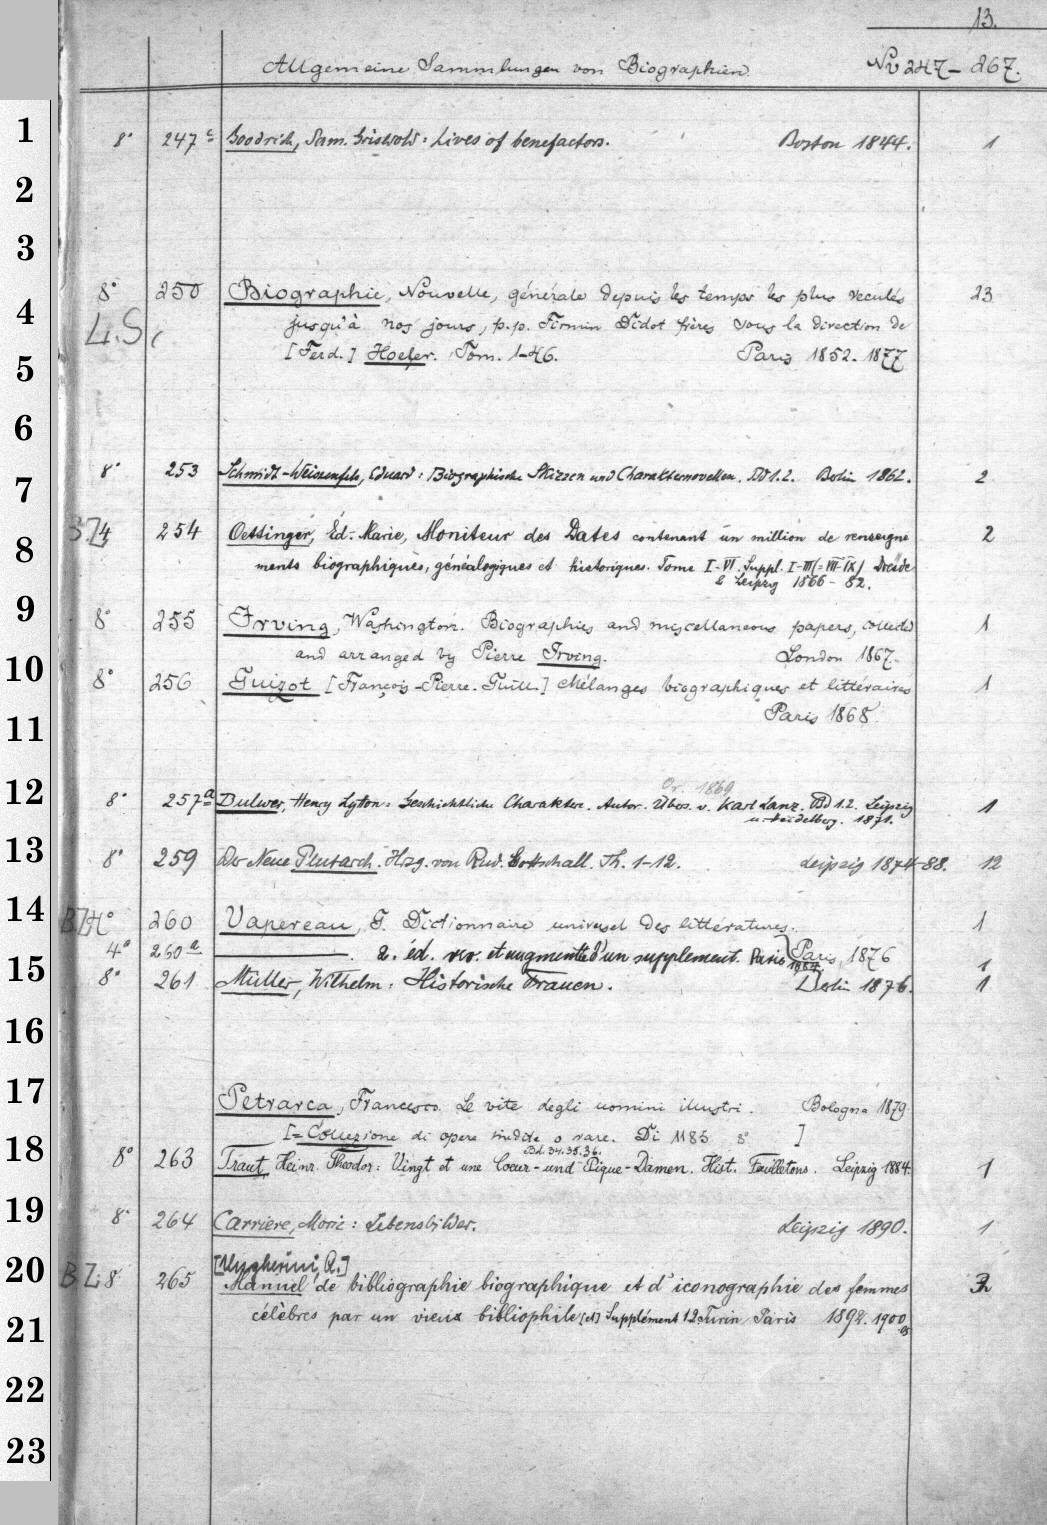 13.
Allgemeine Sammlungen von Biographien. No 247 - 267.
1
8° 247c Goodrich, Sam. Griswold: Lives of benefactors. Boston 1844. 1
2
3
8° 250 Biographie, Nouvelle, générale depuis les temps les plus reculés 23
4
L.S. jusqu'à nos jours, p.p. Firmin Didot frères sous la direction de
[Ferd.] Hoefer. Tom. 1-46. Paris 1852-1877
5
6
8° 253 Schmidt-Weissenfels, Eduard: Biographische Skizzen und Charakternovellen. Bd 1.2. Berlin 1862. 2
7
4 254 Oettinger, Ed. Marie, Moniteur des Dates contenant un million de renseigne 2
8
ments biographiques, généalogiques et historiques. Tome I-VI. Suppl. I-III (= VII-IX) Dresde
& Leipzig 1866 - 82.
9
8° 255 Irving, Washington. Biographies and miscellaneous papers, collected 1
and arranged by Pierre Irving. London 1867.
10
8° 256 Guizot [François-Pierre-Guill.] Mélanges biographiques et littéraires 1
Paris 1868
11
Or. 1869
12
8° 257a Bulwer, Henry Lytton: Geschichtliche Charaktere. Autor. Übers. v. Karl Lanz. Bd 1.2. Leipzig 1
u. Heidelberg. 1871.
13
8° 259 Der Neue Plutarch. Hrsg. von Rud. Gottschall. Th. 1-12. Leipzig 1874-88. 12
14
B.Z. 4° 260 Vapereau, G. Dictionnaire universel des littératures. 1
4° 260a . 2. éd. rev. et augmentée d'un supplement. Paris 1884 Paris, 1876 1
15
8° 261 Müller, Wilhelm: Historische Frauen. Berlin 1876. 1
16
17
Petrarca, Francesco. Le vite degli uomini illustri. Bologna 1879.
[= Collezione di opere inedite o rare. Di 1185 8° ]
Bd. 34.35.36.
18
8° 263 Traut, Heinr. Theodor: Vingt et une Coeur- und Pique-Damen. Hist. Feuilletons. Leipzig 1884. 1
19
8° 264 Carriere, Moriz: Lebensbilder. Leipzig 1890. 1
[Ungherini, A.]
20
B.Z. 8 265 Manuel de bibliographie biographique et d'iconographie des femmes
21
célèbres par un vieux bibliophile [et] Supplément 1.2 Turin Paris 1892. 1900
05
22
23